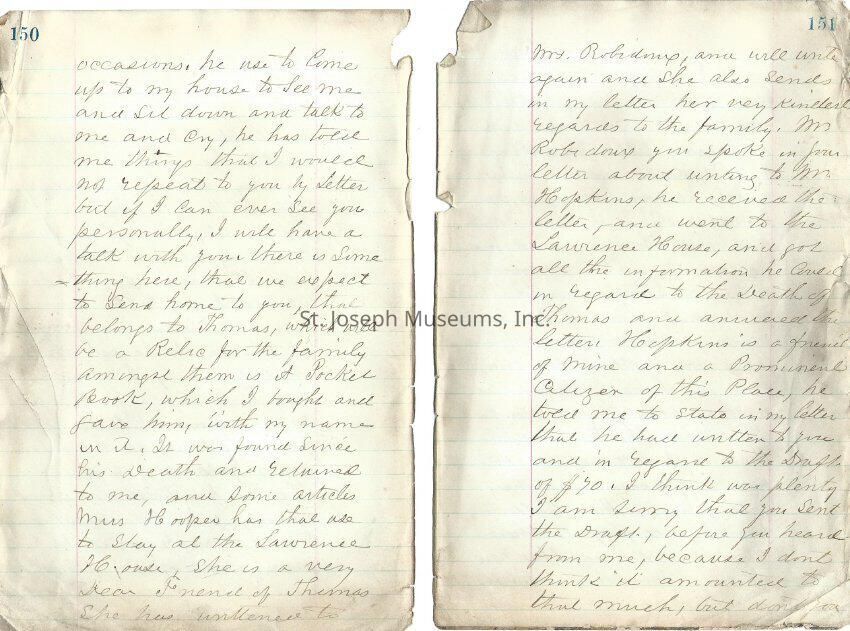 150
occasions. he use to Come
up to my house to See me
and Sit down and talk to
me and Cry, he has told
me things that I would
not repeat to you by Letter
but if I Can ever See you
personally, I will have a
talk with you. there is Some
thing here, that we expect
to Send home to you, that
belongs to Thomas, which will
be a Relic for the family
amongst them is A Pocket
Book, which I bought and
gave him, with my name
in it. It was found Since
his Death and returned
to me, and Some articles
Miss Hooper has that use
to Stay at the Lawrence
House, She is a very
Dear Friend of Thomas
She has writtene to
151
Mrs. Robidoux, and will write
again and She also Sends
in my letter her very kindest
regards to the family. Mr
Robidoux you spoke in your
letter about writing to Mr.
Hopkins, he received the
letter, and went to the
Lawrence House, and got
all the information he Could
in regard to the Death of
Thomas and answered the
letter. Hopkins is a friend
of mine and a Prominent
Citizen of this Place, he
told me to State in my letter
that he had written to you
and in regard to the Draft
of $70. I think was plenty
I am Sorry that you Sent
the Draft, before you heard
from me, because I dont
think it amounted to
that much, but dont you
St. Joseph Museums, Inc.